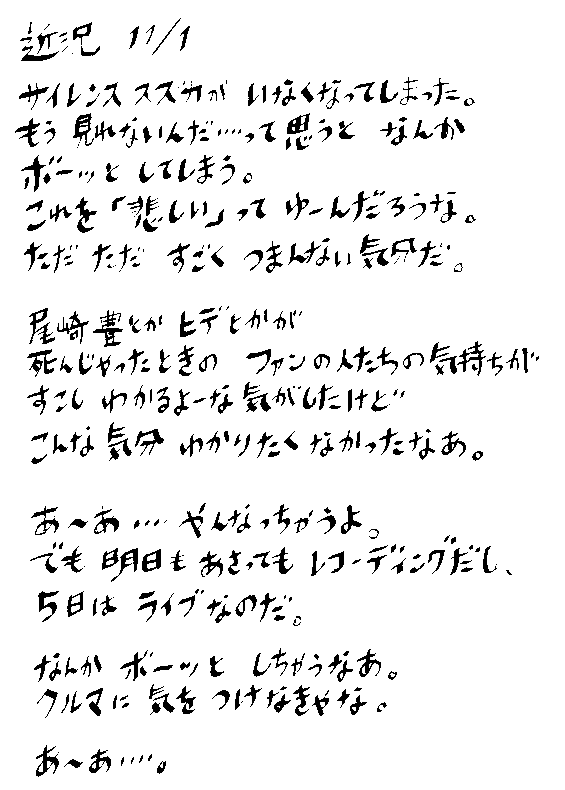 近況 11/1
サイレンススズカが いなくなってしまった。
もう 見れないんだ…って思うと なんか
ボーッと してしまう。
これを「悲しい」って ゆーんだろうな。
ただ ただ すごく つまんない気分だ。
尾崎豊とか ヒデとかが
死んじゃったときの ファンの人たちの気持ちが
すこし わかるよーな気がしたけど
こんな気分 わかりたくなかったなあ。
あ〜あ… やんなっちゃうよ。
でも 明日も あさっても レコーディングだし、
5日は ライブなのだ。
なんか ボーッと しちゃうなあ。
クルマに 気を つけなきゃな。
あ〜あ…。